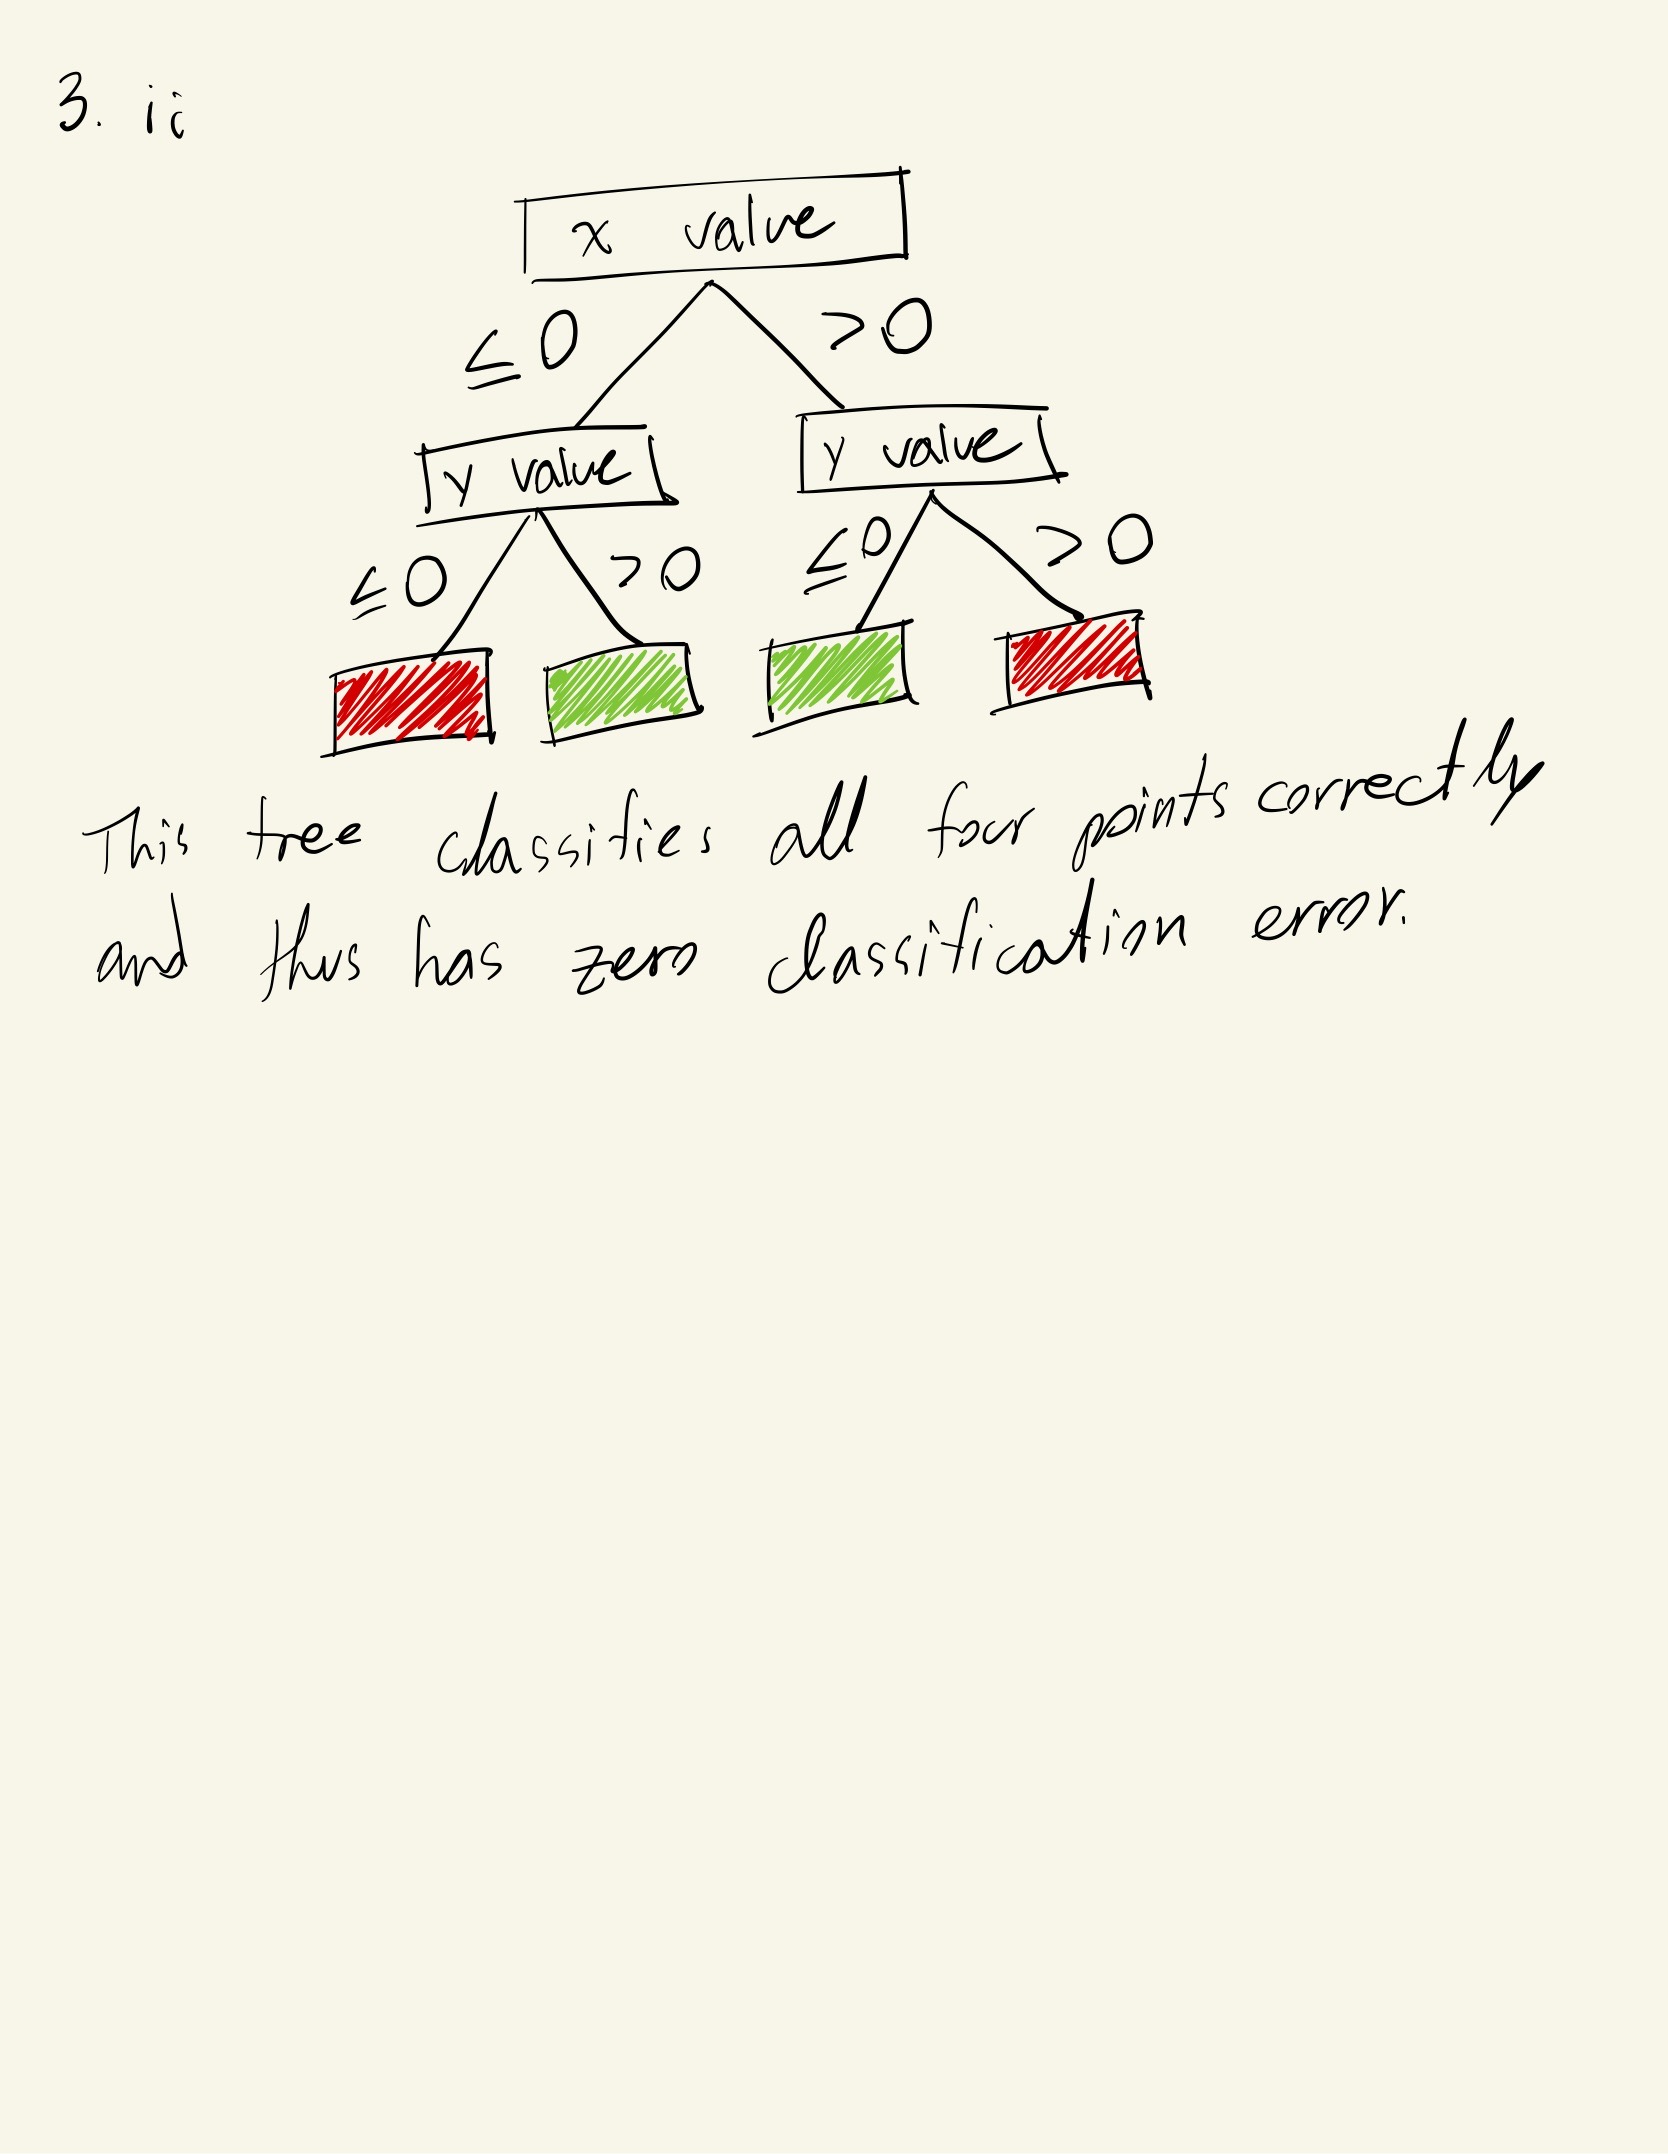 3. ii
x value
≤0 >0
y value y value
≤0 >0 ≤0 >0
This tree classifies all four points correctly
and thus has zero classification error.